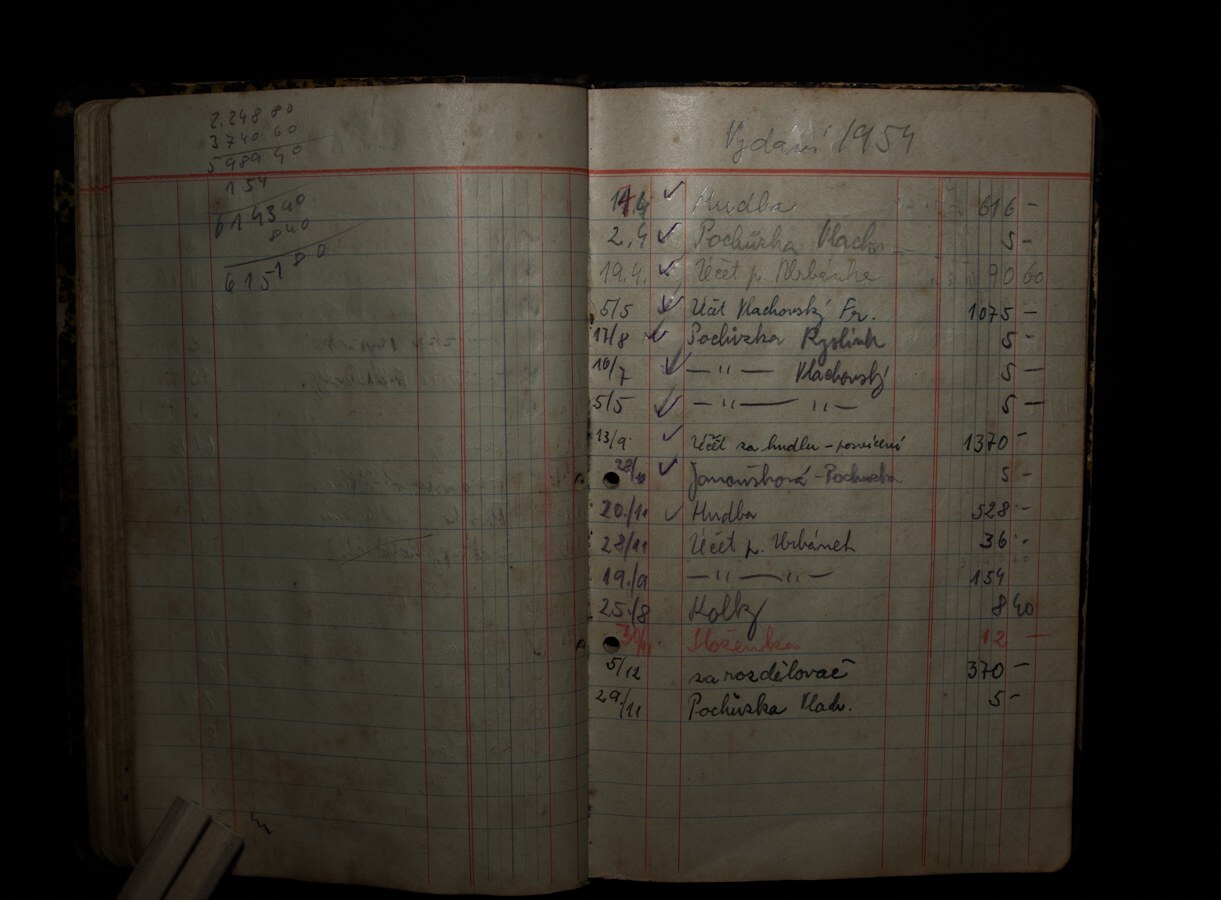 2.248 80
3740 60
5989 40
154
6143 40
8 40
6151 80
Vydání 1954
14.4 ✓ Hudba 616 -
2.4 ✓ Pochůzka Vlach 5 -
19.4. ✓ Účet p. Urbánka 90 60
5/5 ✓ Účet Vlachovský Fr. 1075 -
17/8 ✓ Pochůzka 5 -
16/7 ✓ — " — Vlachovský 5 -
5/5 ✓ — " — " — 5 -
13/9. ✓ Účet za hudbu - posvícení 1370 -
28/10 ✓ Janoušková - Pochůzka 5 -
20./11 ✓ Hudba 528 -
28/11 Účet p. Urbánek 36 -
19./9 — " — " — 154
25./8 Kolky 8 40
Složenka 12 -
5/12 za rozdělovač 370 -
29./11 Pochůzka Vlach. 5 -